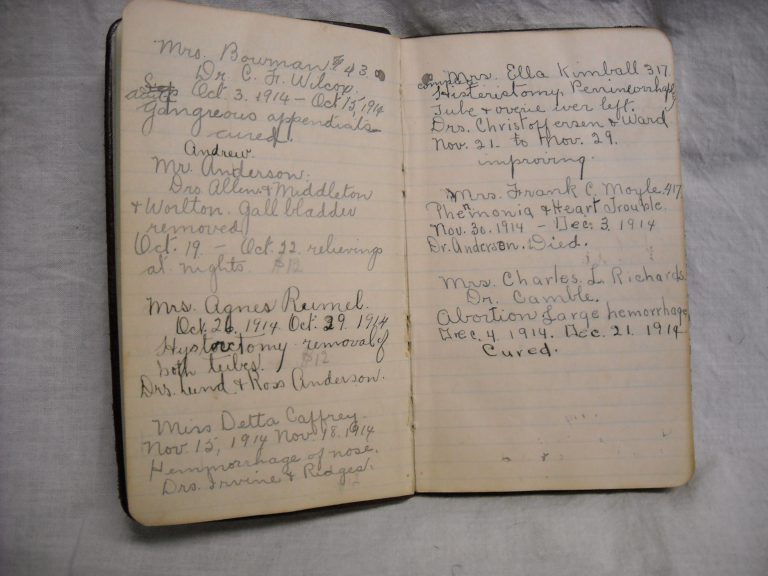 Mrs. Bowman $43.00
Dr. C. F. Wilcox.
Oct. 3. 1914 - Oct 15, 1914
acute Gangreous appendials
cured.
Andrew.
Mr. Anderson.
Drs Allen & Middleton
& Worlton. Gall bladder
removed
Oct. 19 - Oct. 22. relievings
at nights. $12
Mrs. Agnes Rumel.
Oct. 26, 1914 Oct. 29. 1914
Hysterectomy - removal of
both tubes. $12
Drs. Lund & Ross Anderson.
Miss Detta Caffrey.
Nov. 15, 1914 Nov. 18. 1914
Hemmorrhage of nose.
Drs. Irvine & Ridges.
12
Mrs. Ella Kimball 317.
complete
Histeriotomy. Perineorrhapy
Tube & overie over left.
Drs. Christoffersen & Ward
Nov. 21. to Nov. 29.
improving.
Mrs. Frank C. Moyle. 417.
Phenmonia & Heart Trouble.
Nov. 30. 1914 - Dec. 3. 1914
Dr. Anderson. Died.
Mrs. Charles. L. Richards.
Dr. Gamble.
Abortion Large hemorrhage
Dec. 4. 1914. Dec. 21. 1914
Cured.